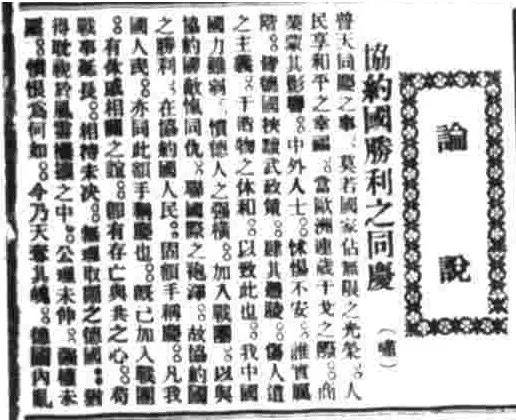 論說
協約國勝利之同慶
（嘯）
普天同慶之事。莫若國家佔無限之光榮。人
民享和平之幸福。當歐洲連歲干戈之際。商
業蒙其影響。中外人士。怵惕不安。誰實厲
階。皆德國挾黷武政策。肆其。傷人道
之主義。干浩物之休和。以致此也。我中國
國力雖弱。憤德人之强橫。加入戰團。以與
協約國敵愾同仇。聯國際之袍澤。故協約國
之勝利。在協約國人民。固額手稱慶。凡我
國人民。亦同此額手稱慶也。旣已加入戰團
。有休戚相關之誼。卽有存亡與共之心。苟
戰事延長。相持未决。無理取鬧之德國。猶
得耽視於風雲之中。公理未伸。强權未
屬。憤恨爲何如。今乃天奪其魄。德國內亂